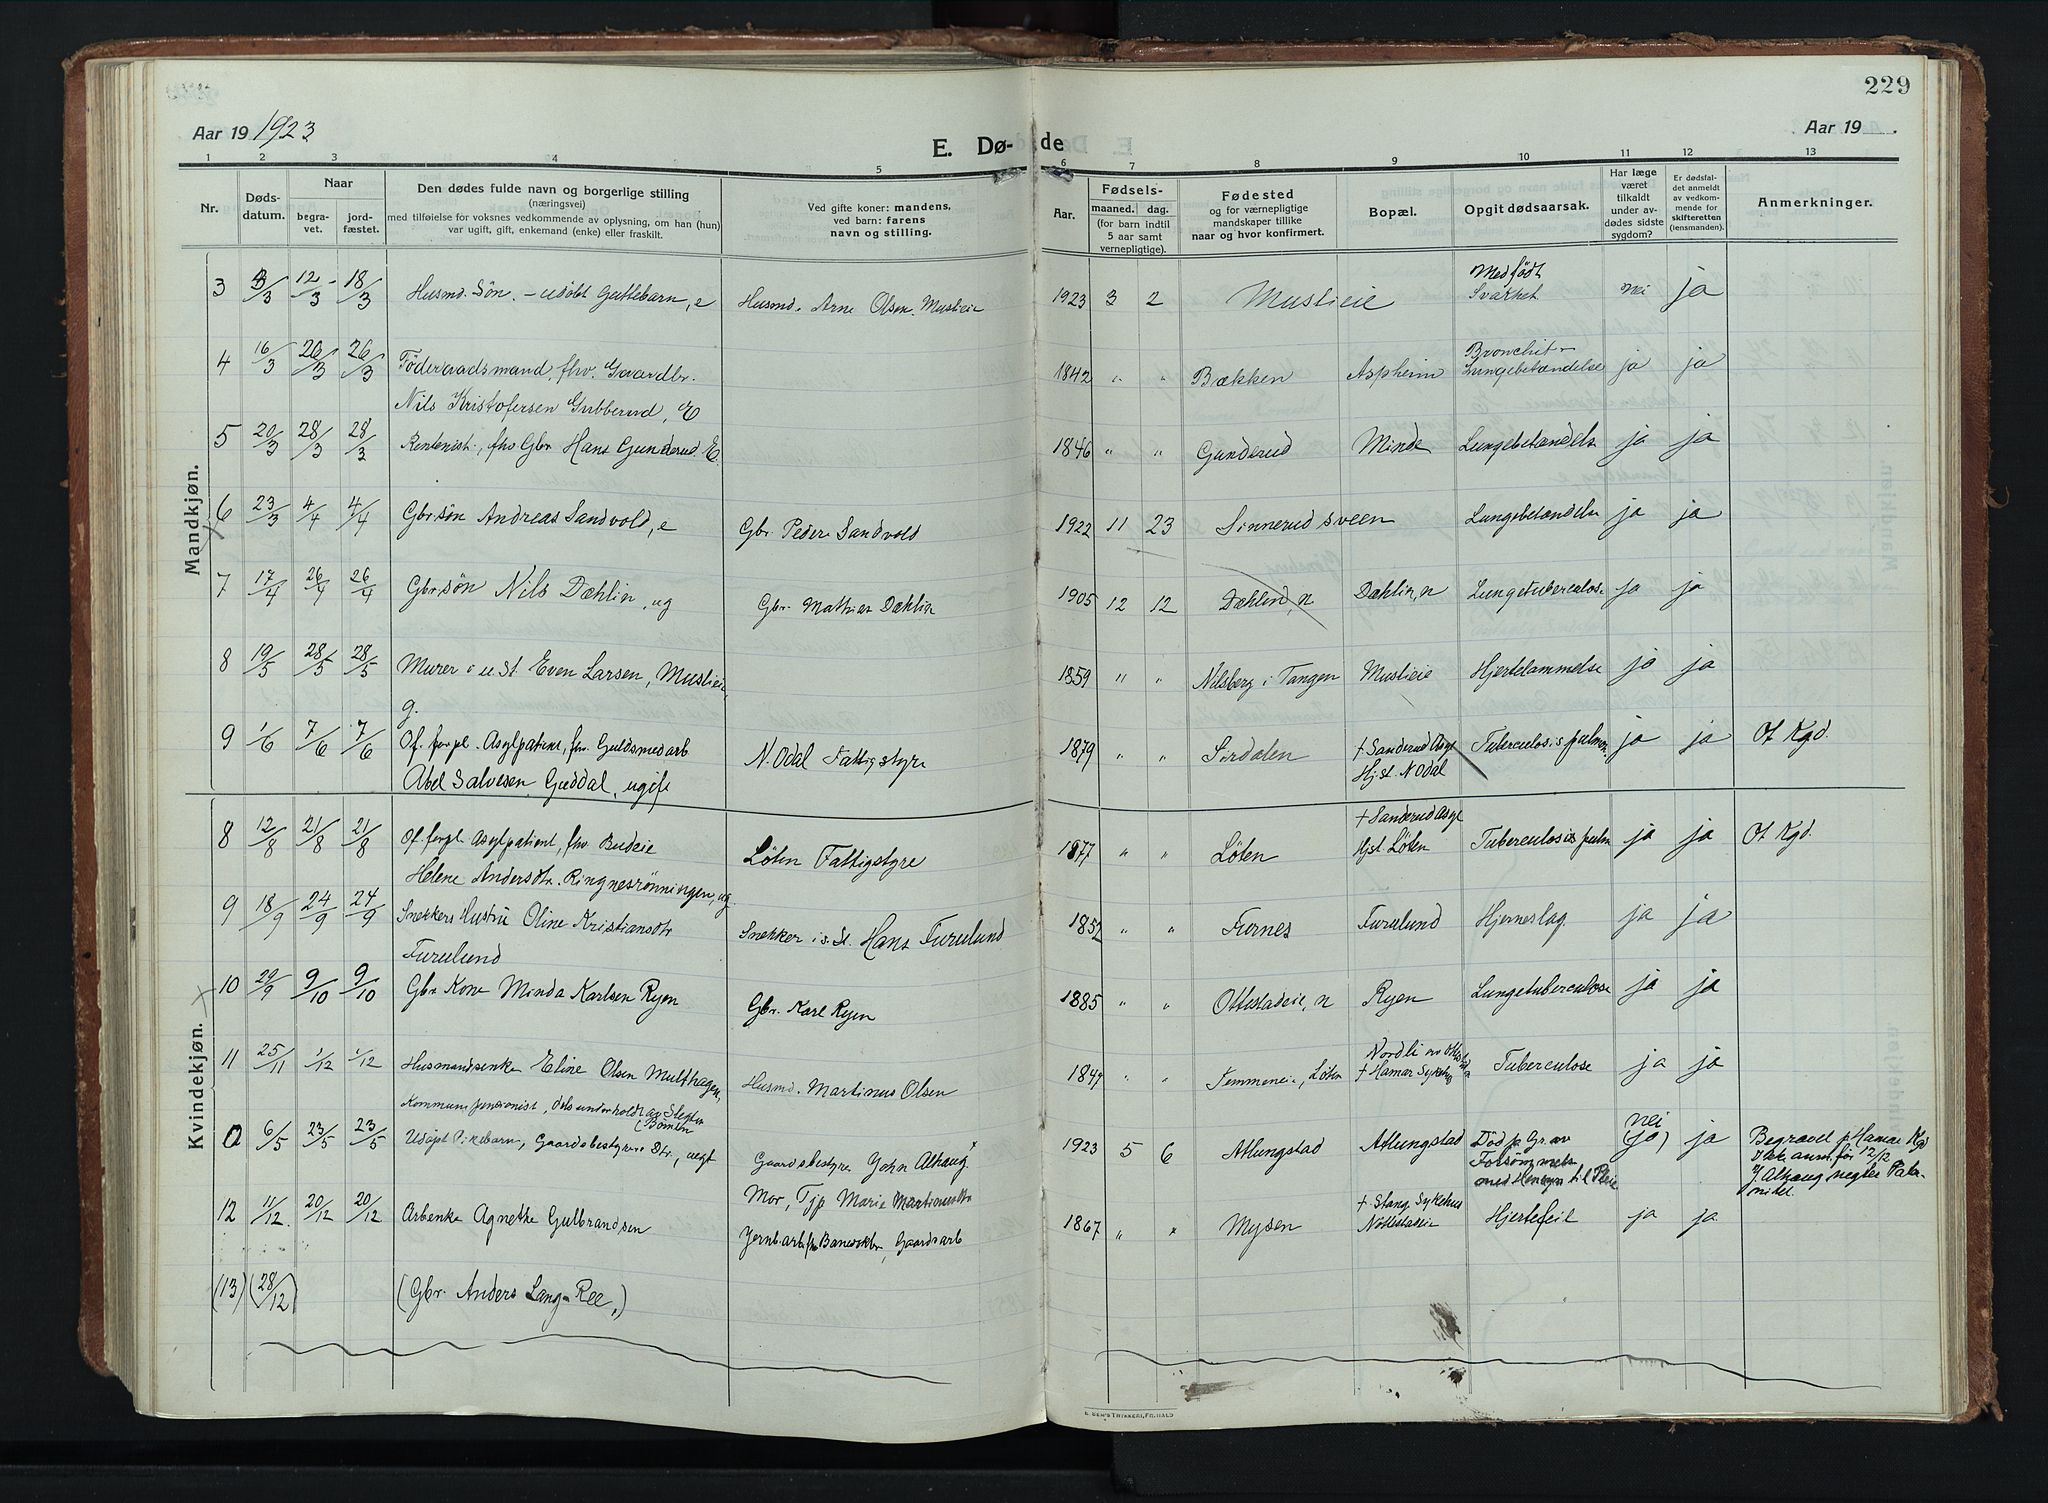 229
Aar 19 1923
E. Dø-
de
Aar 19
1 2 3 4 5 6 7 8 9 10 11 12 13
Nr.
Døds-
datum.
Naar
begra-
vet.
jord-
fæstet.
Den dødes fulde navn og borgerlige stilling
(næringsvei)
med tilføielse for voksnes vedkommende av oplysning, om han (hun)
var ugift, gift, enkemand (enke) eller fraskilt.
Ved gifte koner: mandens,
ved barn: farens
navn og stilling.
Aar.
Fødsels-
maaned. dag.
(for barn indtil
5 aar samt
vernepligtige).
Fødested
og for værnepligtige
mandskaper tillike
naar og hvor konfirmert.
Bopæl.
Opgit dødsaarsak.
Har læge
været
tilkaldt
under av-
dødes sidste
sygdom?
Er dødsfal-
det anmeldt
av vedkom-
mende for
skifteretten
(lensmanden).
Anmerkninger.
Mandkjøn.
3 3/3 12/3 - 18/3 Husmd. Søn. - udøbt Guttebarn, e Husmd. Arne Olsen. Muslieie 1923 3 2 Muslieie Medfødt Svakhet. nei ja
4 16/3 26/3 26/3 Föderaadsmand, fhv. Gaardbr. 1842 " " Bækken Aspheim Bronchit - Lungebetændelse ja ja
Nils Kristofersen Gubberud, E
5 20/3 28/3 28/3 Rentenist, fhv Gbr Hans Gunderud. E. 1846 " " Gunderud Minde Lungebetændels ja ja
6 23/3 4/4 4/4 Gbr søn Andreas Sandvold, e Gbr. Peder Sandvold 1922 11 23 Sinnerudsveen Lungebetændelse ja ja
7 17/4 26/4 26/4 Gbr søn Nils Dæhlin, ug Gbr. Mathias Dæhlin 1905 12 12 Dæhlin, n Dæhlin, n Lungetuberculose ja ja
8 19/5 28/5 28/5 Murer i u. St. Even Larsen, Muslieie 1859 " " Nilsberg i Tangen Muslieie Hjertelammelse ja ja
g.
9 1/6 7/6 7/6 Of. forpl. Asylpatient, fhv. Guldsmedarb N. Odal Fattigstyre 1879 " " Sirdalen + Sanderud Asyl Tuberculosis pulmon ja ja Ot Kgd.
Abel Salvesen Guddal, ugift Hjst. N Odal
Kvindekjøn.
8 12/8 21/8 21/8 Of. forpl Asylpatient, fhv Budeie Løten Fattigstyre 1877 " " Løten + Sanderud Asyl Hjst Løten Tuberculosis pulm ja ja Ot Kgd.
Helene Andersdtr. Ringnesrönningen, ug
9 18/9 24/9 24/9 Snekkers Hustru Oline Kristiansdtr Snekker i s. St. Hans Furulund 1852 " " Furnes Furulund Hjerneslag ja ja
Furulund
10 29/9 9/10 9/10 Gbr Kone Minda Karlsen Ryen Gbr. Karl Ryen 1885 " " Ottestadeie, n Ryen Lungetuberculose ja ja
11 25/11 1/12 1/12 Husmandsenke Eline Olsen Multhagen, Husmd. Martinus Olsen 1847 " " Femmeneie, Løten Nordli + Hamar Sykehus Tuberculose ja ja
Kommunepensionist, dels underholdt av Slegten
0 6/5 23/5 23/5 Udøpt Pikebarn, Gaardsbestyrers Dtr., uegt Gaardsbestyrer John Alhaug 1923 5 6 Atlungstad Atlungstad Död p Gr. av nei (ja) ja Begravet p Hamar Kgd
Forsömmelse Ikke anm. før 12/12
Mor, Tjp Marie Martinusdtr J. Alhaug negter Pater-
nitet.
12 11/12 20/12 20/12 Arbenke Agnethe Gulbrandsen Jernbarb fhv Banevokter, Gaardsarb 1867 " " Mysen + Stang Sykehus Nottestadeie Hjertefeil ja ja
(13) (28/12) (Gbr. Anders Lang-Ree,)
E. SEM'S TRYKKERI, FR.HALD